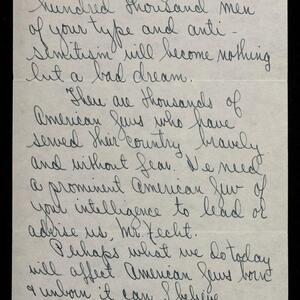 hundred thousand men
of your type and anti-
semitism will become nothing
but a bad dream.
There are thousands of
American Jews who have
served their country bravely
and without fear. We need
a prominent American Jew of
your intelligence to lead or
advise us, Mr. Hecht.
Perhaps what we do today
will affect American Jews born
& unborn it can, I believe